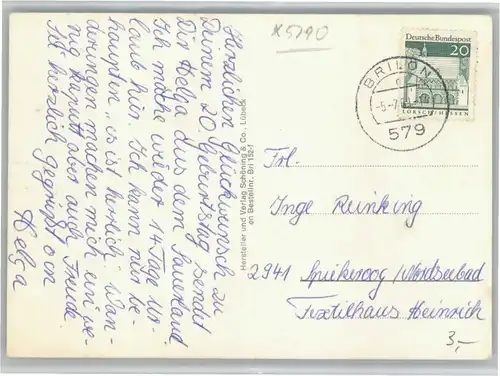 Herzlichen Glückwunsch zu
Deinem 20. Geburtstag sendet
Dir Helga aus dem Sauerland
Ich mache wieder 14 Tage Ur-
laub hier. Ich kann nur be-
haupten, es ist herrlich. Wan-
derungen machen mich ein we-
nig kaputt aber auch Freude.
Sei herzlich gegrüßt von
Helga
Hersteller und Verlag Schöning & Co., Lübeck
an Bestellnr. Bri 152-1
x5790
Deutsche Bundespost
20
LORSCH/HESSEN
BRILON
579
Frl.
Inge Reinking
2941 Spiekeroog/Nordseebad
Textilhaus Heinrich
3,-